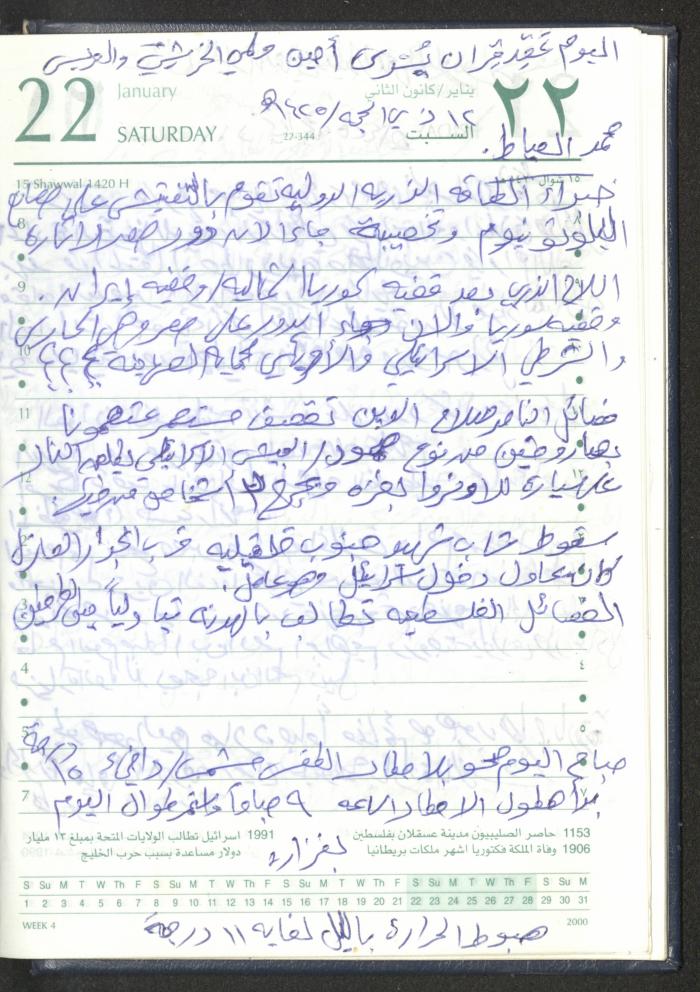 اليوم عقد قران يسرى أمين حلمي الخرشتي والعريس
22 January يناير/كانون الثاني ٢٢
١٢ ذي الحجه/١٤٢٥ه
SATURDAY 22-344 السبت
محمد العياط.
15 Shawwal 1420 H ١٥ شوال ١٤٢٠
خبراء الطاقه الذريه الدوليه تقوم بالتفتيش على مصانع
البلوتونيوم وتخصيبه جاء الان دور مصر لاثارة
السلاح الذري بعد قضيه كوريا الشماليه/وقضيه إيران.
وقضيه سوريا والان جاء الدور على مصر وهل الحارس
والشرطي الاسرائيلي والأمريكي لحماية الصهيونية ؟؟؟
فصائل الناصر صلاح الدين تقصف مستعمرة
بصاروخين من نوع / الجيش الاسرائيلي يطلق النار
على سيارة للاونروا بغزه ويجرح اشخاص من فيها.
سقوط شاب شهيد جنوب قلقيليه قرب الجدار العازل
كان يحاول دخول اسرائيل وهو عامل.
الفصائل الفلسطينيه تطالب بالهدنه تبادلياً من الطرفين
صباح اليوم صحو بلا امطار الطقس مشمس/دافيء ٢٥ درجة
بدأ هطول الامطار الساعه ٩ صباحاً واستمر طوال اليوم
بغزاره
1153 حاصر الصليبيون مدينة عسقلان بفلسطين
1906 وفاة الملكة فكتوريا اشهر ملكات بريطانيا
1991 اسرائيل تطالب الولايات المتحة بمبلغ ١٣ مليار
دولار مساعدة بسبب حرب الخليج
S Su M T W Th F S Su M T W Th F S Su M T W Th F S Su M T W Th F S Su M
1 2 3 4 5 6 7 8 9 10 11 12 13 14 15 16 17 18 19 20 21 22 23 24 25 26 27 28 29 30 31
WEEK 4 2000
هبوط الحرارة بالليل لغايه ١١ درجة